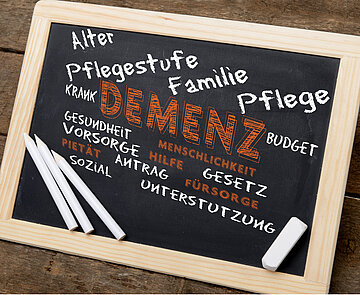 Alter
Pflegestufe
Familie
KRANK
DEMENZ
Pflege
GESUNDHEIT
VORSORGE
MENSCHLICHKEIT
BUDGET
PIETÄT
ANTRAG
HILFE
GESETZ
SOZIAL
FÜRSORGE
UNTERSTÜTZUNG